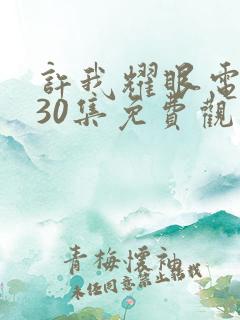 許我耀眼電
30集免費觀
青梅懷袖
未经同意禁止转载